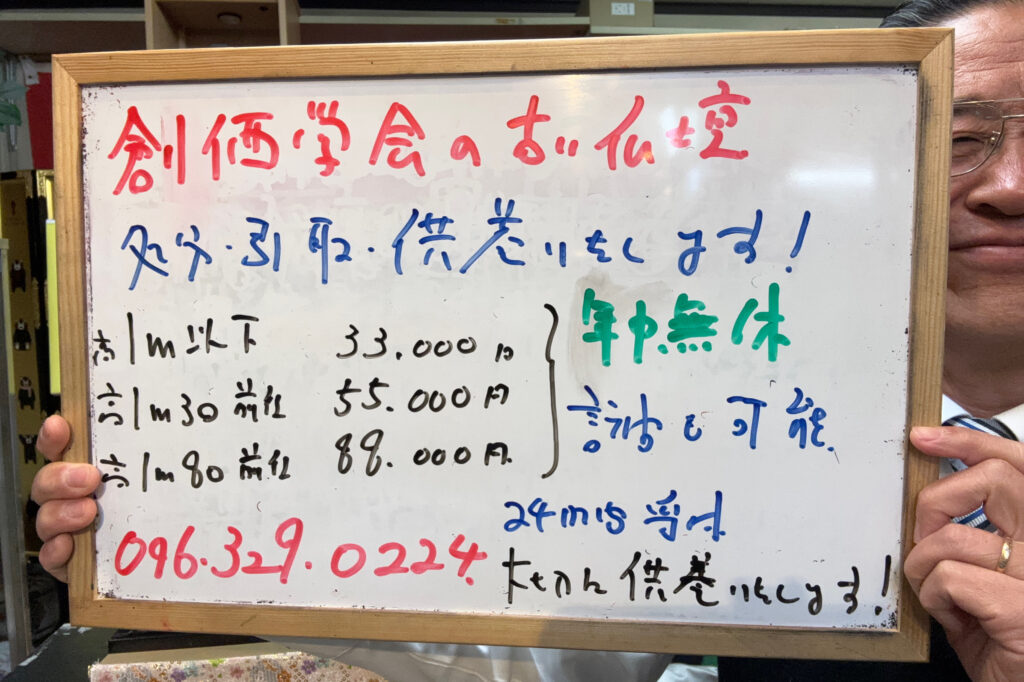 創価学会の古い仏壇
処分・引取・供養いたします!
高1m以下 33.000円
高1m30前後 55.000円
高1m80前後 88.000円
年中無休
も可能
24 受付
096.329.0224
供養いたします!